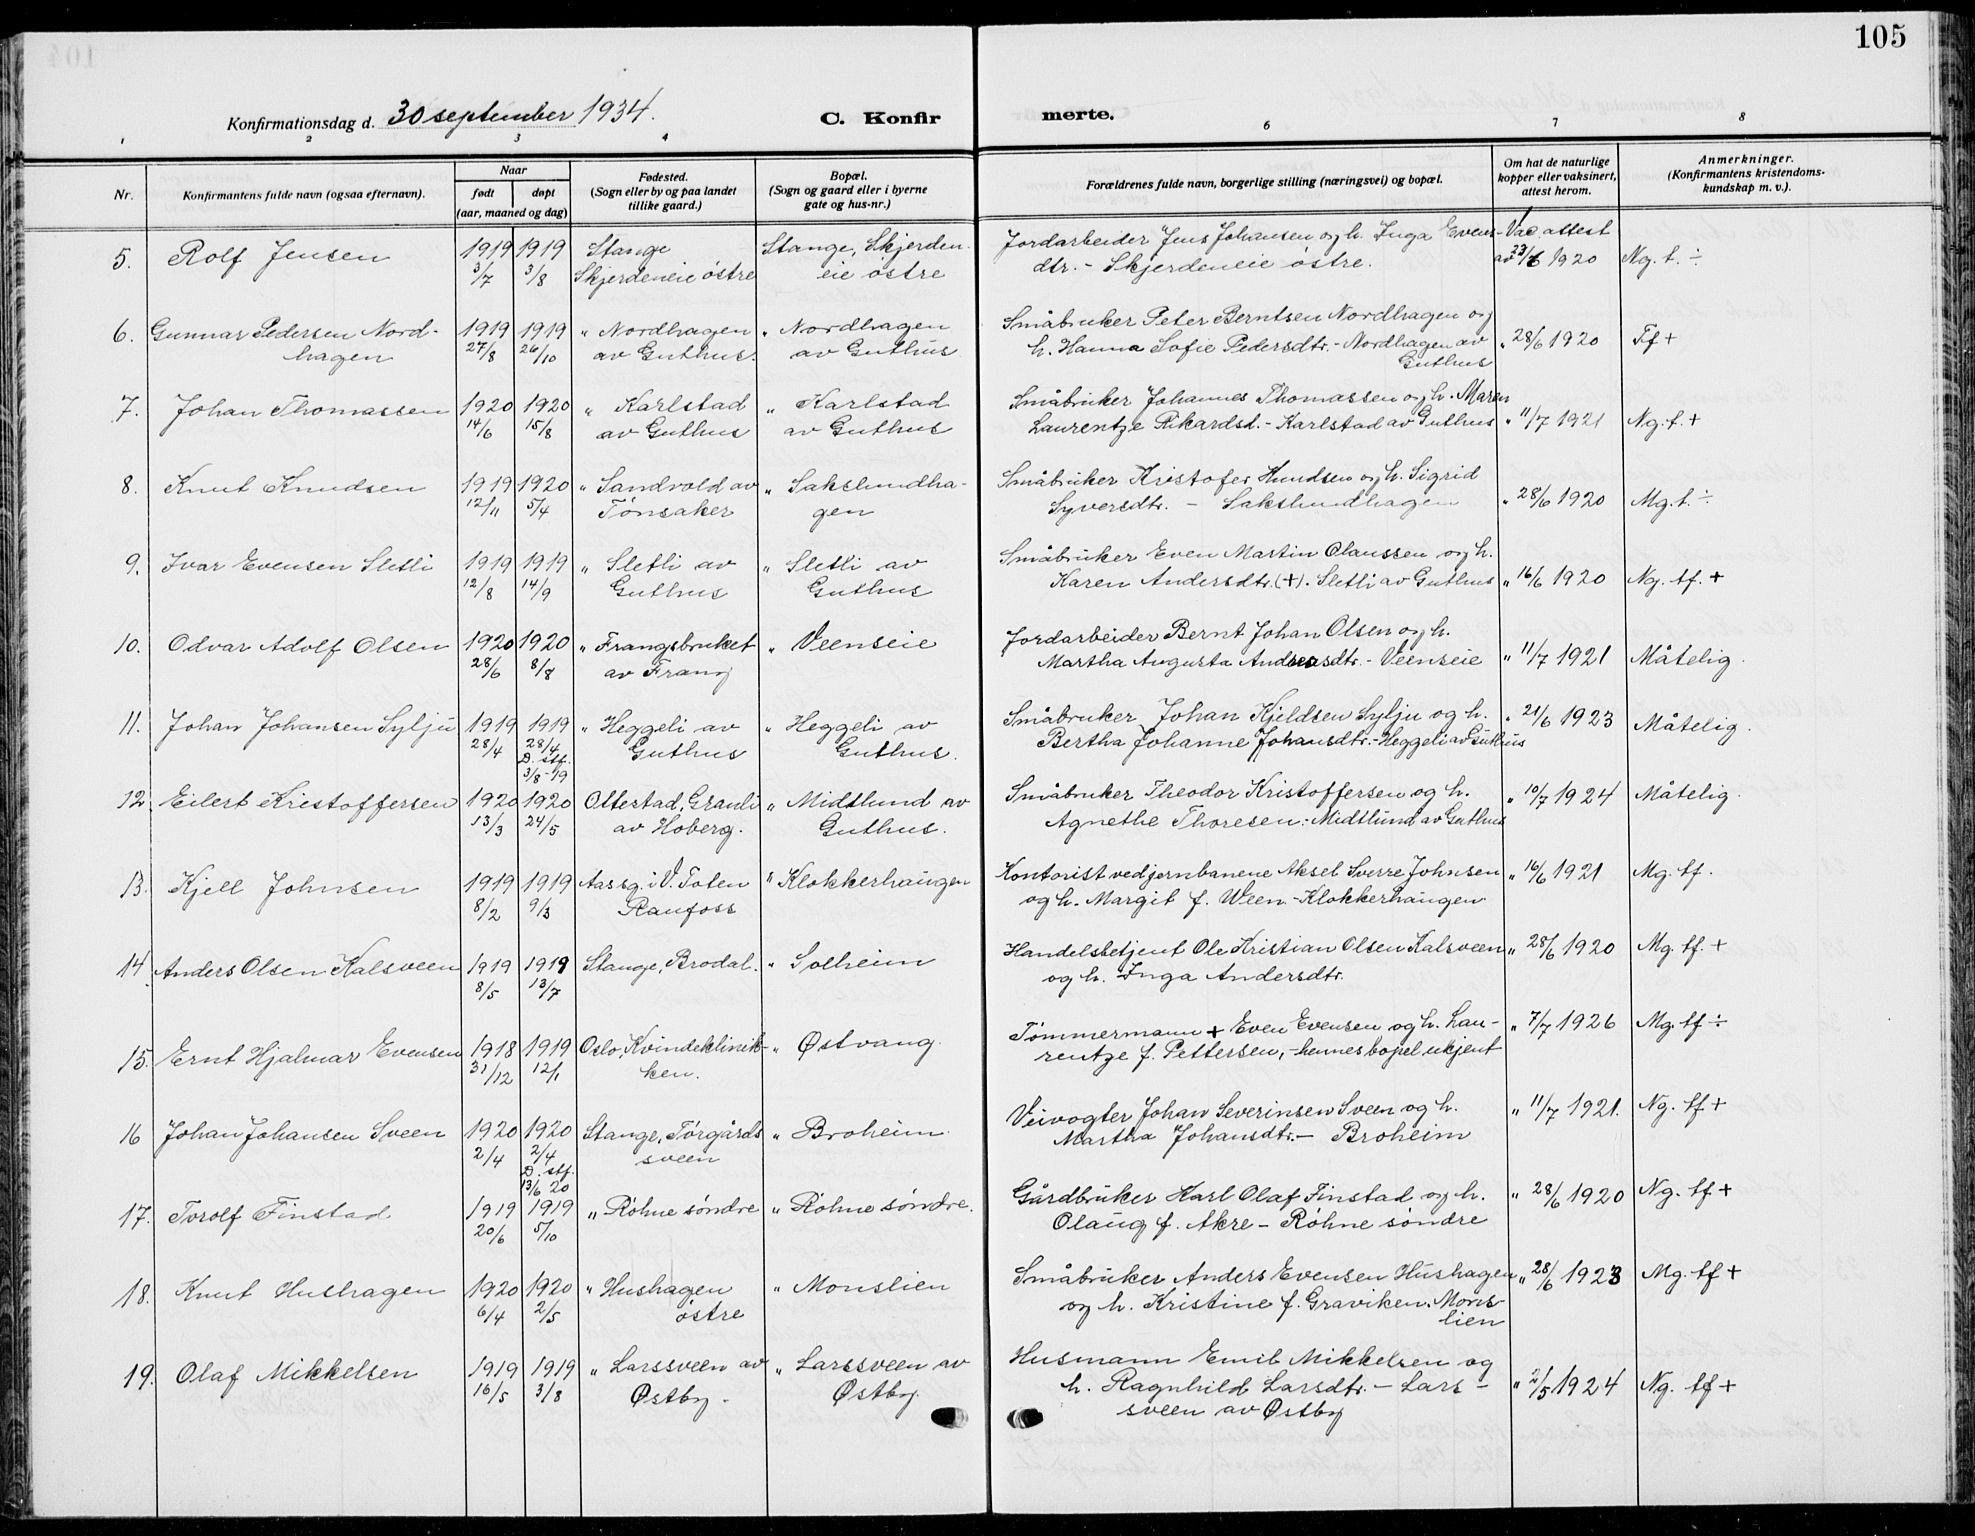 105
Konfirmationsdag d. 30 september 1934.
C. Konfir
merte.
1 2 3 4 6 7 8
Nr.
Konfirmantens fulde navn (ogsaa efternavn).
Naar
født
døpt
(aar, maaned og dag)
Fødested.
(Sogn eller by og paa landet
tillike gaard.)
Bopæl.
(Sogn og gaard eller i byerne
gate og hus-nr.)
Forældrenes fulde navn, borgerlige stilling (næringsvei) og bopæl.
Om hat de naturlige
kopper eller vaksinert,
attest herom.
Anmerkninger.
(Konfirmantens kristendoms-
kundskap m. v.).
5. Rolf Jensen 1919 1919 Stange Stange, Skjerden- Jordarbeider Jens Johansen og h. Inga Evens- Vac attest
3/7 3/8 Skjerdeneie østre eie østre dtr. - Skjerdeneie østre. av 23/6 1920 Ng. t. ÷
6. Gunnar Pedersen Nord- 1919 1919 " Nordhagen " Nordhagen Småbruker Peter Berntsen Nordhagen og
hagen 27/8 26/10 av Guthus. av Guthus h. Hanna Sofie Pedersdtr. - Nordhagen av " 28/6 1920 Tf +
Guthus
7. Johan Thomassen 1920 1920 " Karlstad " Karlstad Småbruker Johannes Thomassen og h. Maren
14/6 15/8 av Guthus av Guthus Laurentze Rikardsd. - Karlstad av Guthus " 11/7 1921 Ng. t. +
8. Knut Knudsen 1919 1920 " Sandvold av " Sakslundha- Småbruker Kristofer Knudsen og h. Sigrid
12/11 5/4 Tønsaker gen Syversdtr. - Sakslundhagen " 28/6 1920 Mg. t. ÷
9. Ivar Evensen Sletli 1919 1919 " Sletli av " Sletli av Småbruker Even Martin Olaussen og h.
12/8 14/9 Guthus Guthus Karen Andersdtr. (+). Sletli av Guthus " 16/6 1920 Ng. tf. +
10. Odvar Adolf Olsen 1920 1920 " Frangsbruket " Veenseie Jordarbeider Bernt Johan Olsen og h.
28/6 8/8 av Frang Martha Augusta Andreasdtr. - Veenseie " 11/7 1921 Måtelig.
11. Johan Johansen Sylju 1919 1919 " Heggeli av " Heggeli av Småbruker Johan Kjeldsen Sylju og h. " 21/6 1923 Måtelig.
28/4 28/4 Guthus Guthus. Bertha Johanne Johansdtr. - Heggeli av Guthus
D. stf.
3/8-19
12. Eilert Kristoffersen 1920 1920 Ottestad, Granli " Midtlund av Småbruker Theodor Kristoffersen og h. " 10/7 1924 Måtelig.
13/3 24/5 av Hoberg. Guthus. Agnethe Thoresen: Midtlund av Guthus
13. Kjell Johnsen 1919 1919 Aas sg. i V. Toten " Klokkerhaugen Kontorist ved jernbanene Aksel Sverre Johnsen " 16/6 1921 Mg. tf.
8/2 9/3 Raufoss og h. Margit f. Ween - Klokkerhaugen.
14. Anders Olsen Kalsveen 1919 1919 Stange, Brodal. " Solheim Handelsbetjent Ole Kristian Olsen Kalsveen " 28/6 1920 Mg. tf. +
8/5 13/7 og h. Inga Andersdtr.
15. Ernt Hjalmar Evensen 1918 1919 Oslo, Kvindeklinik- " Østvang. Tømmermann + Even Evensen og h. Lau- " 7/7 1926 Mg. tf ÷
31/12 12/1 ken. rentze f. Pettersen, - hennes bopel ukjent
16 Johan Johansen Sveen 1920 1920 Stange, Torgårds " Broheim. Veivogter Johan Severinsen Sveen og h. " 11/7 1921. Ng. tf +
2/4 2/4 sveen Martha Johansdtr. - Broheim
D. stf.
13/6 20
17. Torolf Finstad 1919 1919 " Røhne søndre " Røhne søndre. Gårdbruker Karl Olaf Finstad og h. " 28/6 1920 Ng. tf +
20/6 5/10 Olaug f. Akre - Røhne søndre
18. Knut Hushagen 1920 1920 " Hushagen " Monslien Småbruker Anders Evensen Hushagen " 28/6 1923 Mg. tf +
6/4 2/5 østre og h. Kristine f. Graviken. Mons-
lien
19. Olaf Mikkelsen 1919 1919 " Larssveen av " Larssveen av Husmann Emil Mikkelsen og
16/5 3/8 Østby. Østby. h. Ragnhild Larsdtr. - Lars - " 2/5 1924 Ng. tf +
sveen av Østby